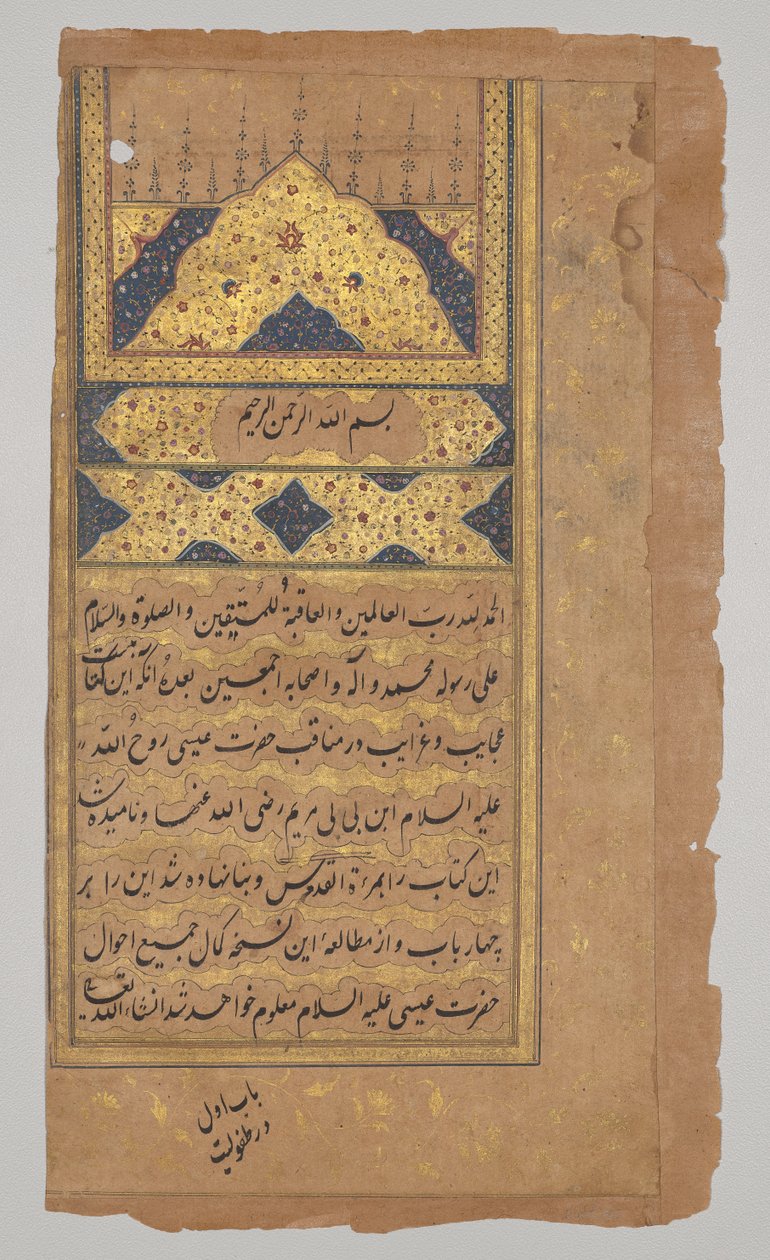 بسم الله الرحمن الرحیم
الحمد لله رب العالمین والعاقبة للمتقین والصلوة والسلام
علی رسوله محمد و آله و اصحابه اجمعین بعده انکه این کتابیست
عجایب و غرایب در مناقب حضرت عیسی روح الله
علیه السلام ابن بی بی مریم رضی الله عنها و نامیده شد
این کتاب را بمرءة القدس و بنا نهاده شد این را بر
چهار باب و از مطالعهٔ این نسخه کمال جمیع احوال
حضرت عیسی علیه السلام معلوم خواهد شد انشاءالله تعالی
باب اول
در طفولیت